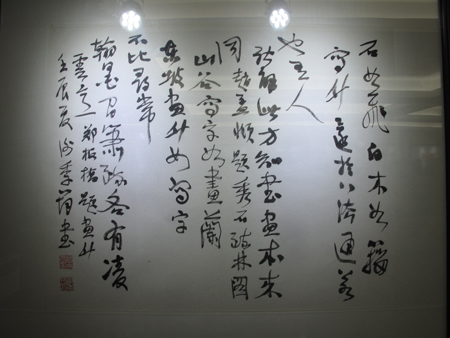 石如飛白木如籀
寫竹還於八法通若
也有人
能解此方知書畫本來
同趙孟頫題秀石疏林圖
山谷寫字如畫蘭
東坡畫竹如寫字
不比尋常
翰墨間蕭疏各有凌
雲意鄭板橋題畫竹
壬辰季書